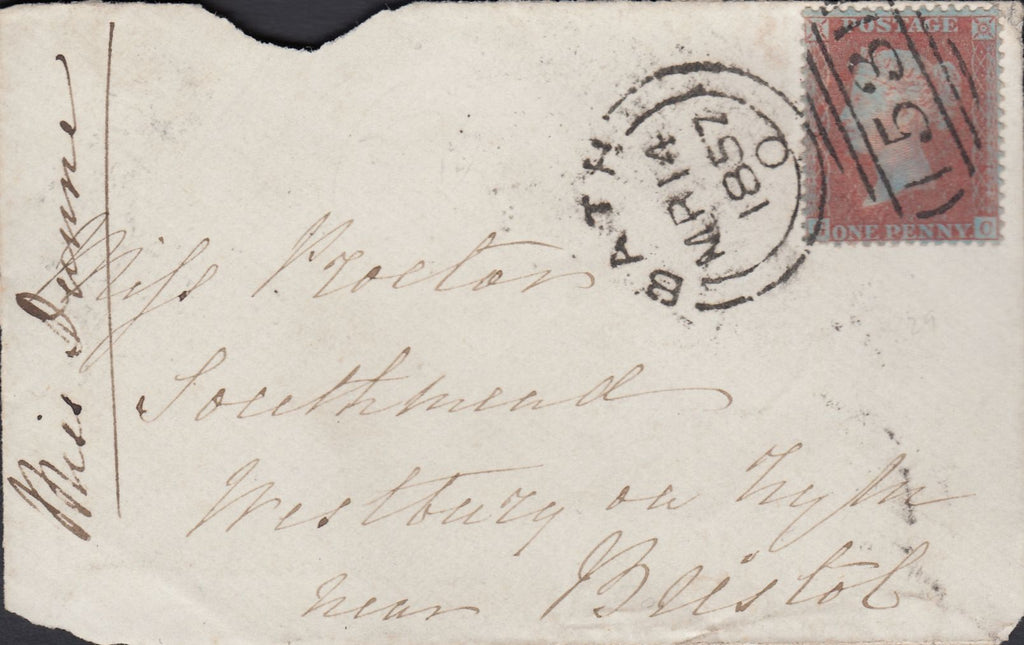 Miss Dunne
POSTAGE
53
ONE PENNY
BATH
MR 14
1857
Miss Procton
Southmead
Westbury on Trym
near Bristol
29